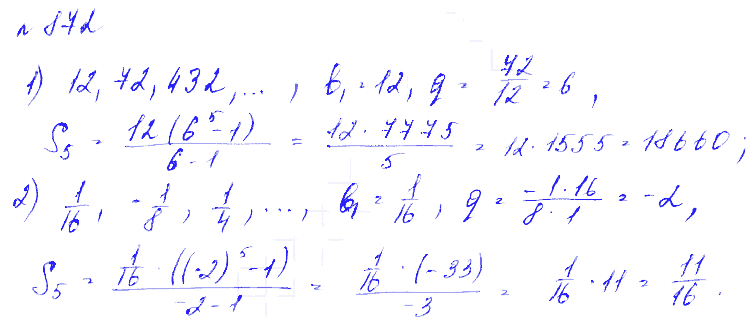 n 872
1) 12, 72, 432, ..., b₁ = 12, q = 72/12 = 6,
S₅ = 12(6⁵-1)/6-1 = 12·7775/5 = 12·1555 = 18660;
2) 1/16, -1/8, 1/4, ..., b₁ = 1/16, q = -1·16/8·1 = -2,
S₅ = 1/16·((-2)⁵-1)/-2-1 = 1/16·(-33)/-3 = 1/16·11 = 11/16.